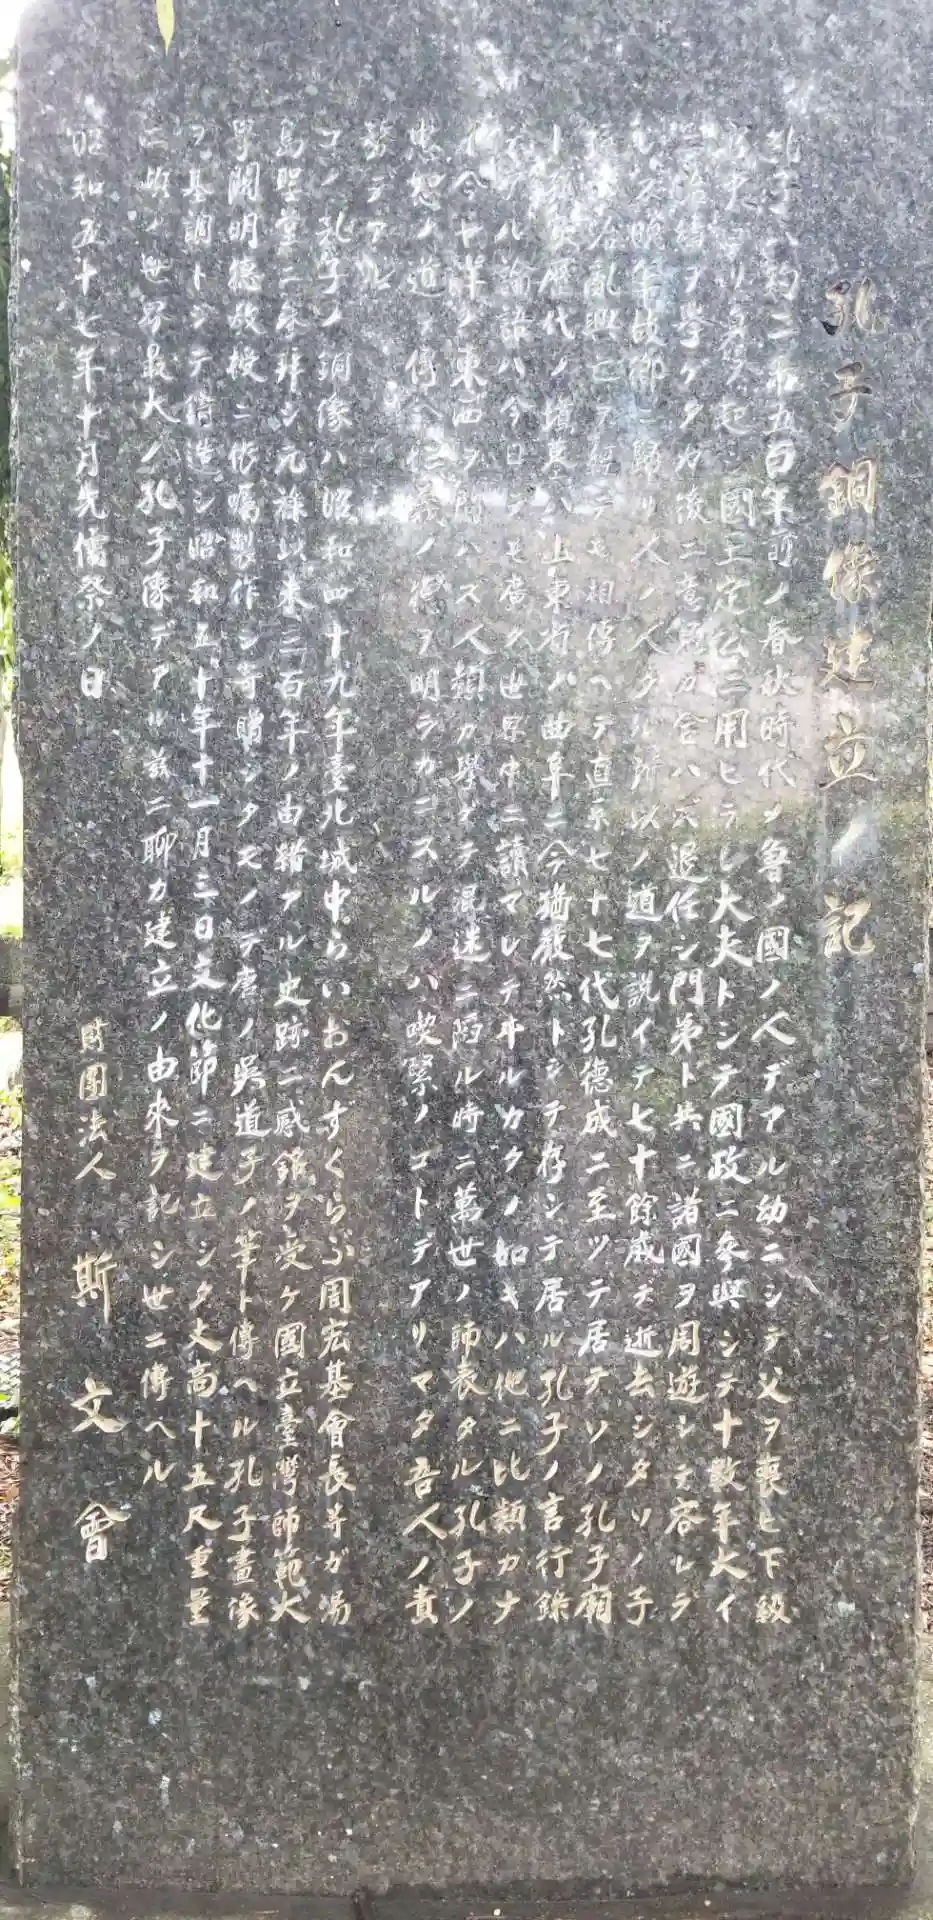 孔子銅像建立ノ記
孔子ハ約二千五百年前ノ春秋時代ノ魯ノ國ノ人デアル幼ニシテ父ヲ喪ヒ下級
ヨリ身ヲ起シ國王定公ニ用ヒラレ大夫トシテ國政ニ參與シテ十數年大イ
ニ治績ヲ擧ゲタガ後ニ意見ガ合ハズ退任シ門弟ト共ニ諸國ヲ周遊シテ容レラ
レズ晩年故郷ニ歸リ人ノ人タル所以ノ道ヲ説イテ七十餘歳デ逝去シタソノ子
孫ハ治亂興亡ヲ經テモ相傳ヘテ直系七十七代孔德成ニ至ツテ居テソノ孔子廟
ト歴代ノ墳墓ハ山東省ノ曲阜ニ今猶嚴然トシテ存シテ居ル孔子ノ言行錄
デアル論語ハ今日シモ廣ク世界中ニ讀マレテヰルカクノ如キハ他ニ比類カナ
イ今ヤ洋ノ東西ヲ問ハズ人類カ擧ゲテ混迷ニ陷ル時ニ萬世ノ師表タル孔子ノ
忠恕ノ道ヲ傳ヘ仁義ノ德ヲ明ラカニスルノハ喫緊ノコトデアリマタ吾人ノ責
務デアル
コノ孔子ノ銅像ハ昭和四十九年臺北城中らいおんずくらぶ周宏基會長等ガ湯
島聖堂ニ參拜シ元祿以來三百年ノ由緒アル史跡ニ感銘ヲ受ケ國立臺灣師範大
學闕明德教授ニ依囑製作シ寄贈シタモノデ唐ノ吳道子ノ筆ト傳ヘル孔子畫像
ヲ基調トシテ鑄造シ昭和五十年十一月三日文化節ニ建立シタ丈高十五尺重量
ノ世界最大ノ孔子像デアル茲ニ聊カ建立ノ由來ヲ記シ世ニ傳ヘル
昭和五十七年十月先儒祭ノ日
財團法人 斯文會